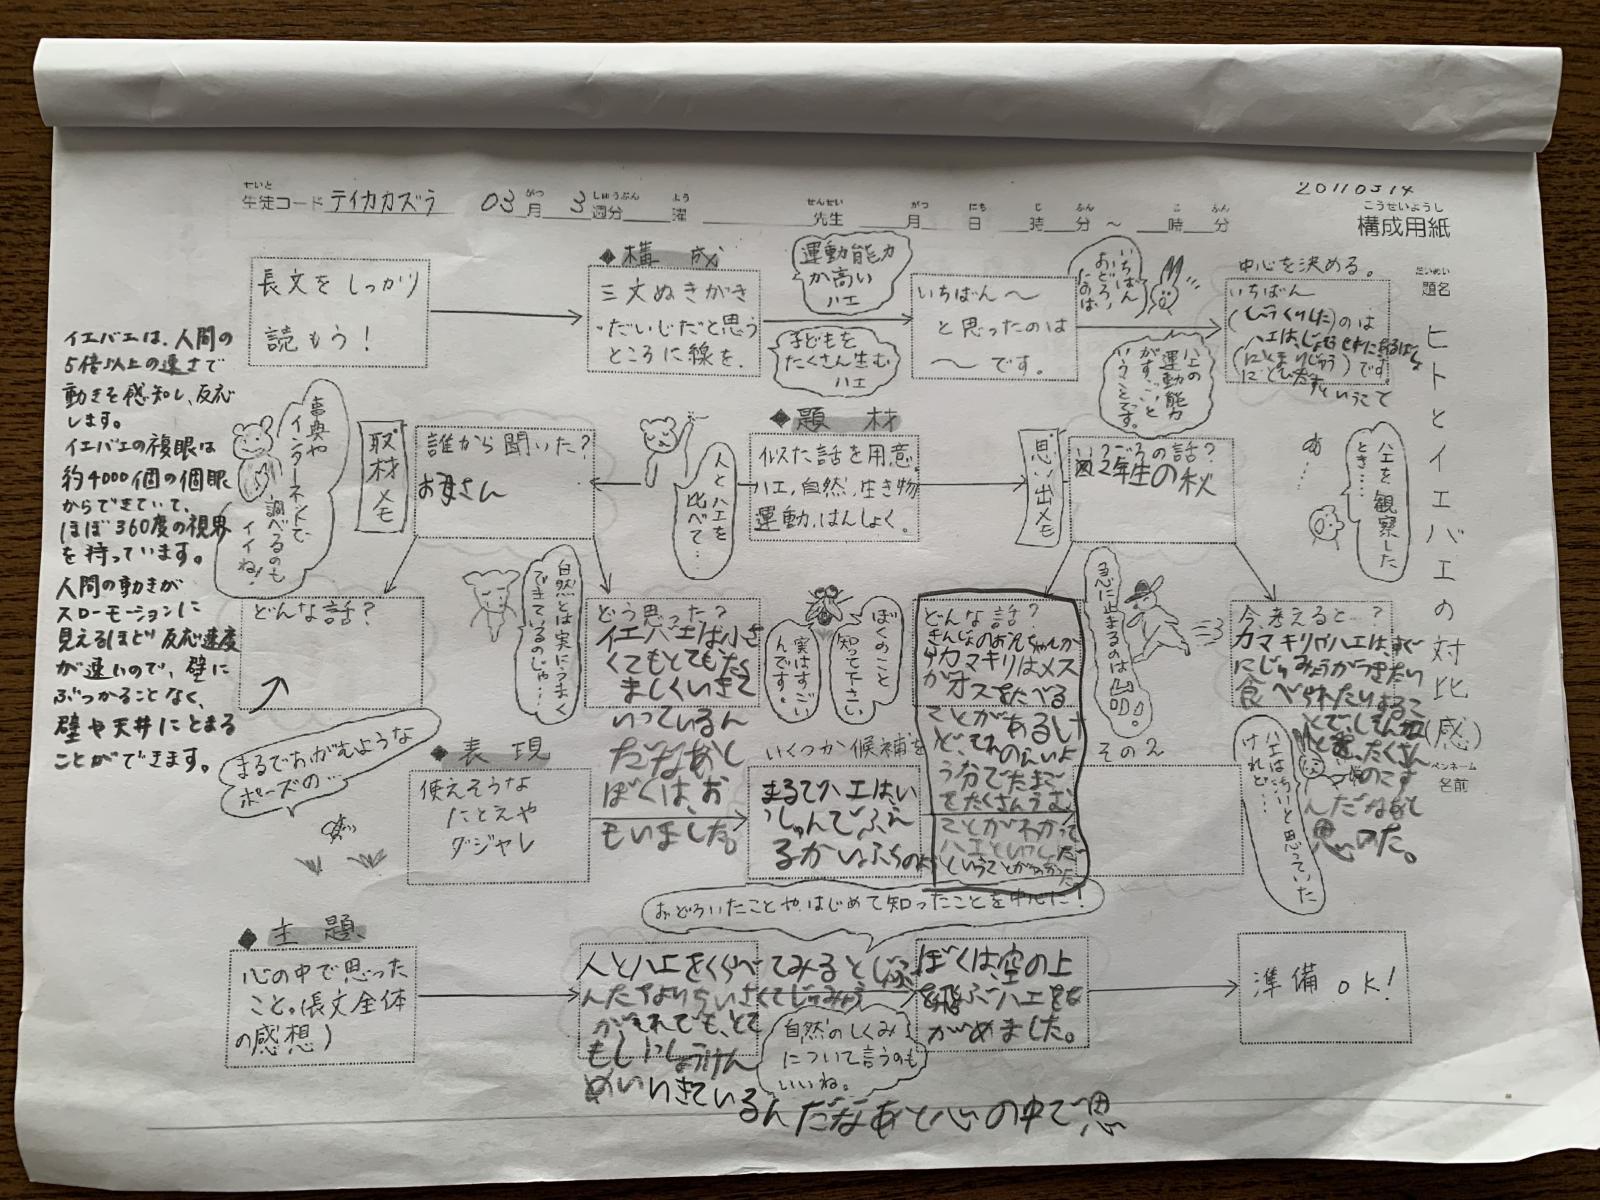 20110314
せいと
生徒コード テイカカズラ 03月 3週分 曜 先生 月 日 時 分 ～ 時 分
がつ しゅうぶん よう せんせい がつ にち じ ふん じ ふん
こうせいようし
構成用紙
だいめい
題名
ヒトとイエバエの対比(感)
ペンネーム
名前
長文をしっかり
読もう！
◆構成
三文ぬきがき
・だいじだと思う
ところに線を。
運動能力
が高い
ハエ
子どもを
たくさん生む
ハエ
いちばん～
と思ったのは
～です。
いちばん
おどろい
たのは
ハエの
運動能力
がすごいと
いうことです。
中心を決める。
いちばん
(しっくりした)のは
です。
イエバエは、人間の
5倍以上の速さで
動きを感知し、反応
します。
イエバエの複眼は
約4000個の個眼
からできていて、
ほぼ360度の視界
を持っています。
人間の動きが
スローモーションに
見えるほど反応速度
が速いので、壁に
ぶつかることなく、
壁や天井にとまる
ことができます。
事典や
インターネットで
調べるのも
イイね！
取材メモ
誰から聞いた？
お母さん
人とハエを
比べて…
◆題材
似た話を用意。
ハエ、自然、生き物
運動、はんしょく。
思い出メモ
いつごろの話？
2年生の秋
あ…
ハエを観察した
とき……
どんな話？
まるでおがむような
ポーズの…
自然とは実にうまく
できているのじゃ…
どう思った？
イエバエは小さ
くてもとても、たく
ましくいきて
いっているん
だなあと
ぼくは、お
もいました。
ぼくのこと
知って下さい
実はすごい
んです。
どんな話？
きんじょのお兄ちゃんか
らカマキリはメス
がオスをたべる
ことがあるけ
ど、そのえいよ
う分でたまご
をたくさんうむ
ことがわかって
急に止まるのは凸凹。
今、考えると…？
カマキリやハエは、すぐ
にじゅみょうがつきたり
食べられたりするこ
たくさん
のこす
んだなあと
思った。
ハエはちいと思っていた
けれど…
◆表現
使えそうな
たとえや
ダジャレ
いくつか候補を
まるでハエは、い
っしゅんでふえ
るかいぶつのよ
その2
おどろいたことや、はじめて知ったことを中心に！
◆主題
心の中で思った
こと。(長文全体
の感想)
人とハエをくらべてみるとじぶ
んたちよりちいさくてじゅみょう
がそれでも、とて
もいっしょうけん
めいいきているんだなあと心の中で思
自然のしくみ
について言うのも
いいね。
ぼくは、空の上
を飛ぶハエをな
がめました。
準備OK！